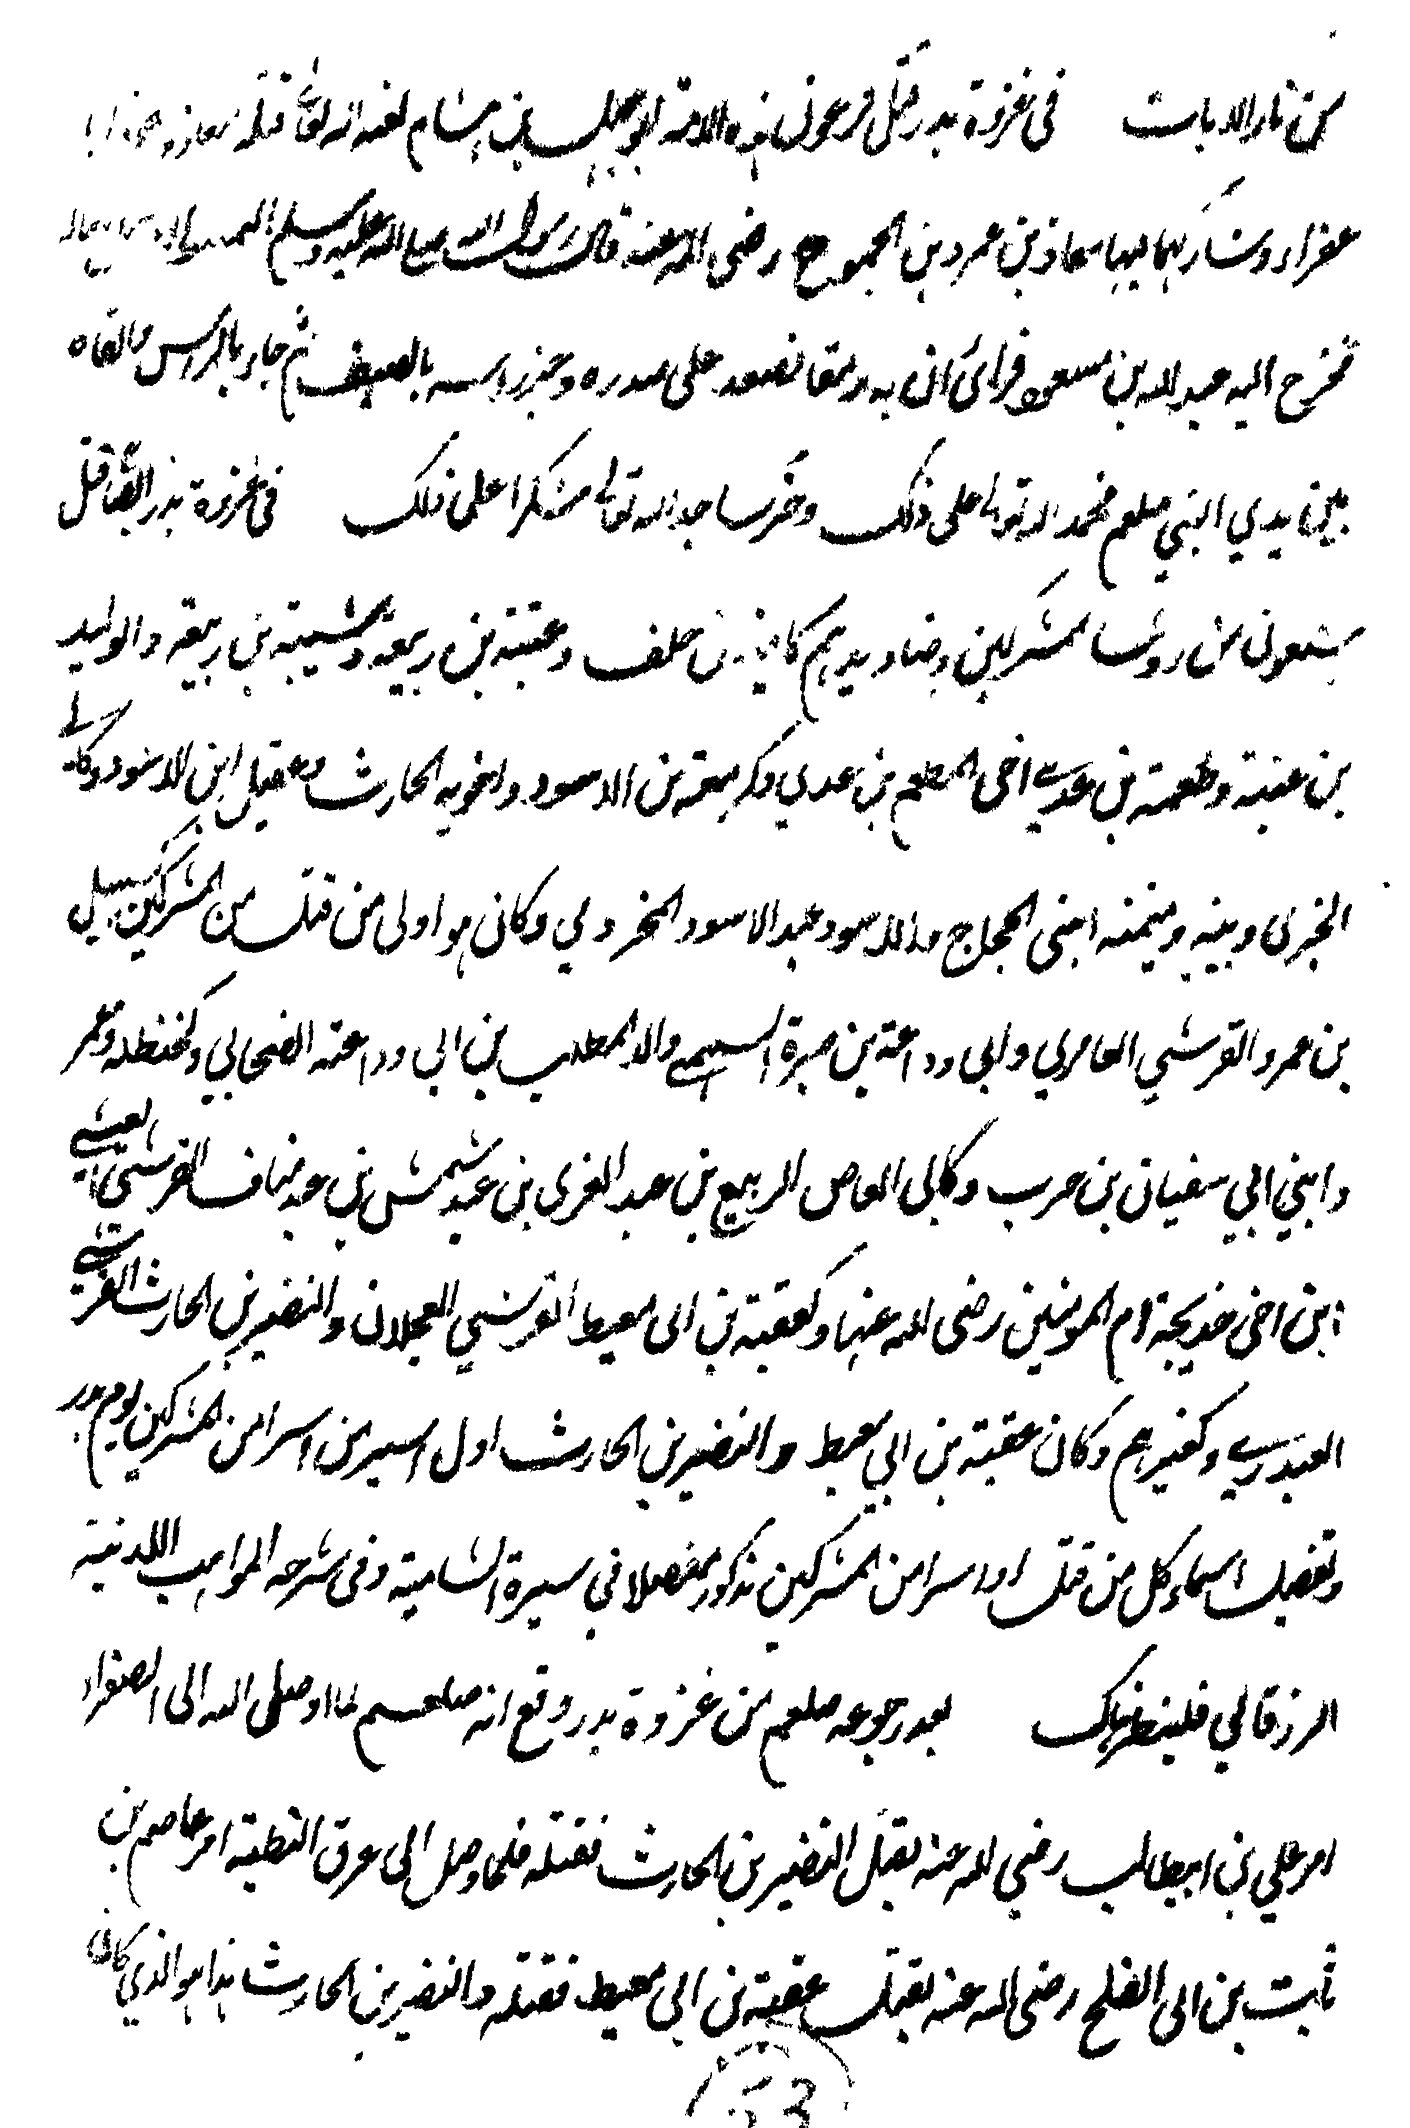 من تار الايات في غزوة بدر قتل فرعون هذه الامة ابو جهل بن هشام لعنه الله تعا قتله معاذ
عفراء وشاركهما فيها معاذ بن عمرو بن الجموح رضى الله عنه قال رسول الله صلى الله عليه وسلم
فخرج اليه عبد الله بن مسعود فراى ان به رمقا فصعد على صدره وجز راسه بالسيف ثم جاء بالراس والقاه
بين يدي النبي صلعم فحمد الله تعالى على ذلك وخر ساجدا لله تعالى شكرا على ذلك في غزوة بدر ايضا قتل
سبعون من روسا المشركين وصناديدهم كامية بن خلف وعتبة بن ربيعة وشيبة بن ربيعة والوليد
بن عتبة وطعمة بن عدي اخى المطعم بن عدي وكربيعة بن الاسود واخويه الحارث وعقيل ابن الاسود وكابي
البخترى ونبيه ومنبه ابنى الحجاج والاسود عبد الاسود المخزومي وكان هو اولى من قتل من المشركين سهيل
بن عمرو القرشي العامري وابى وداعة بن صبرة السهمي والد المطلب بن ابى وداعة الصحابي وكحنظلة وعمر
وابني ابي سفيان بن حرب وكابى العاص الربيع بن عبد العزى بن عبد شمس بن عبد مناف القرشي العبشمي
ابن اخى خديجة ام المومنين رضى الله عنها وكعقبة بن ابى معيط القرشي العجلان والنضير بن الحارث القرشي
العبدري وكغيرهم وكان عقبة بن ابي معيط والنضير بن الحارث اول اسيرين اسرا من المشركين يوم بدر
وتفصيل اسماء كل من قتل او اسر من المشركين مذكور مفصلا في سيرة الشامية وفى شرحه المواهب اللدنية
الرزقالي فلينظر هناك بعد رجوعه صلعم من غزوة بدر وقع انه صلعم لما اوصل الله الى الصفراء
امر علي بن ابيطالب رضي الله عنه بقتل النضير بن الحارث فقتله فلما وصل الى عرق الظبية امر عاصم بن
ثابت بن ابى الفلح رضى الله عنه بقتل عقبة بن ابى معيط فقتله والنضير بن الحارث هذا هو الذي كان